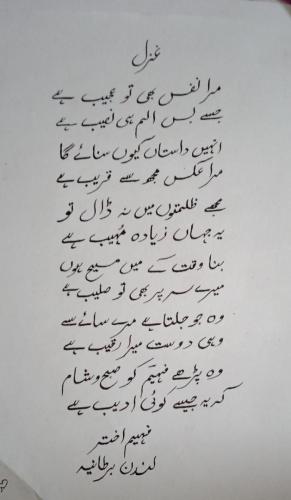 غزل
مرا نفس بھی تو عجیب ہے
جسے بس الم ہی نصیب ہے
انہیں داستاں کیوں سنائے گا
مرا عکس مجھ سے قریب ہے
مجھے ظلمتوں میں نہ ڈال تو
یہ جہاں زیادہ مہیب ہے
بنا وقت کے میں مسیح ہوں
میرے سر پر بھی تو صلیب ہے
وہ جو جلتا ہے مرے سائے سے
وہی دوست میرا رقیب ہے
وہ پڑھے فہیم کو صبح و شام
کہ یہ جیسے کوئی ادیب ہے
فہیم اختر
لندن برطانیہ